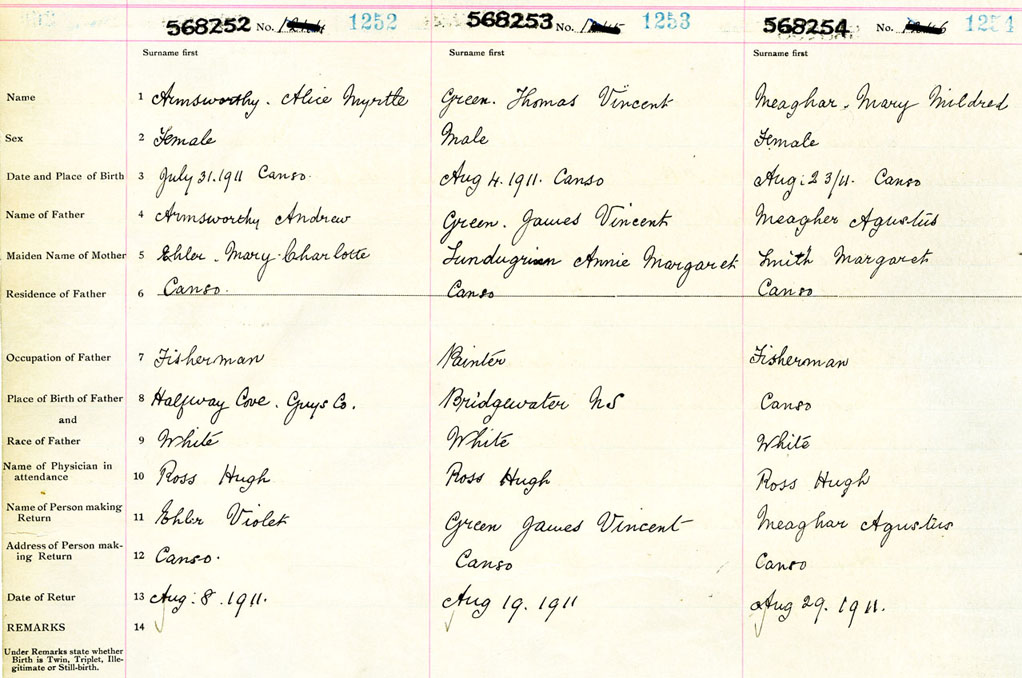 568252 No. 1252 568253 No. 1253 568254 No. 1254
Surname first Surname first Surname first
Name 1 Armsworthy. Alice Myrtle Green. Thomas Vincent Meaghar. Mary Mildred
Sex 2 Female Male Female
Date and Place of Birth 3 July 31.1911 Canso. Aug 4.1911. Canso Aug. 23/11. Canso
Name of Father 4 Armsworthy Andrew Green. James Vincent Meagher Agustus
Maiden Name of Mother 5 Ehler. Mary Charlotte Annie Margaret Smith Margaret
Residence of Father 6 Canso. Canso Canso
Occupation of Father 7 Fisherman Painter Fisherman
Place of Birth of Father 8 Halfway Cove. Guys Co. Bridgewater NS Canso
and
Race of Father 9 White White White
Name of Physician in
attendance 10 Ross Hugh Ross Hugh Ross Hugh
Name of Person making
Return 11 Ehler Violet Green James Vincent Meaghar Agustus
Address of Person mak-
ing Return 12 Canso. Canso Canso
Date of Retur 13 Aug: 8. 1911. Aug 19. 1911 Aug 29. 1911.
REMARKS 14
Under Remarks state whether
Birth is Twin, Triplet, Ille-
gitimate or Still-birth.